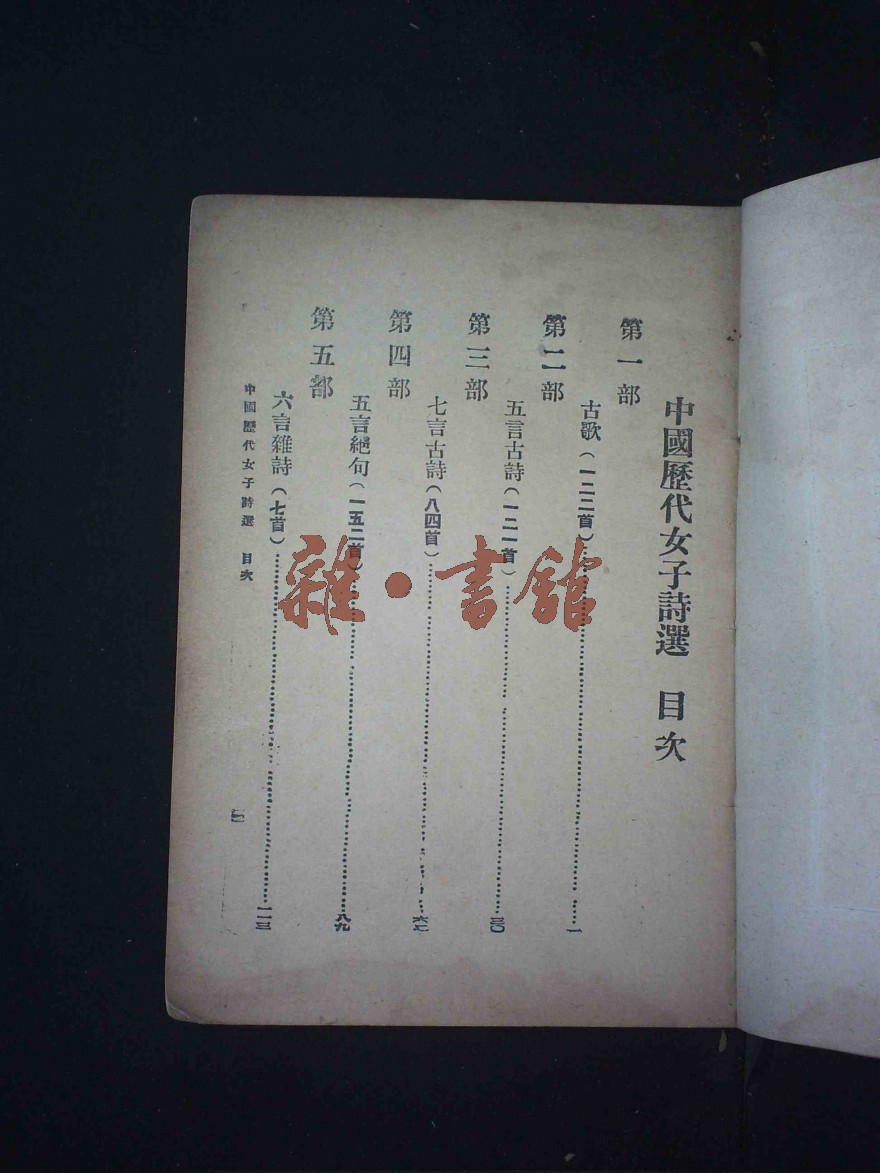 中國歷代女子詩選　目次
第一部
古歌(一二二首)……一
第二部
五言古詩(一二一首)……三〇
第三部
七言古詩(八四首)……六二
第四部
五言絕句(一五二首)……八九
第五部
六言雜詩(七首)……一一三
中國歷代女子詩選　目次
雜·書館